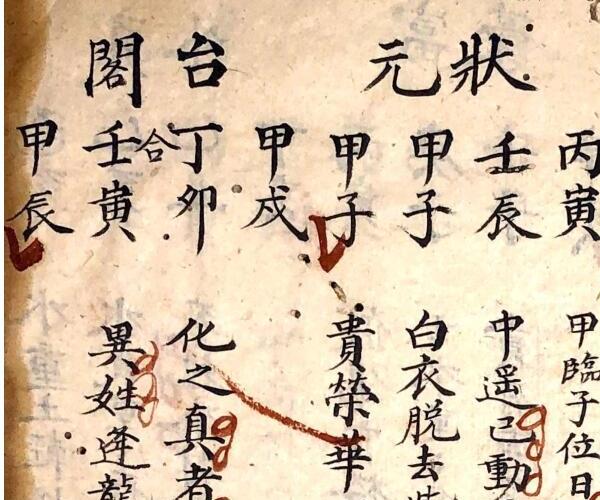 狀元
台閣
丙寅
壬辰
甲子
甲子
甲戌
丁卯
合
壬寅
甲辰
甲臨子位日
中遥已動
白衣脱去
貴榮華
化之真者
異姓逢龍